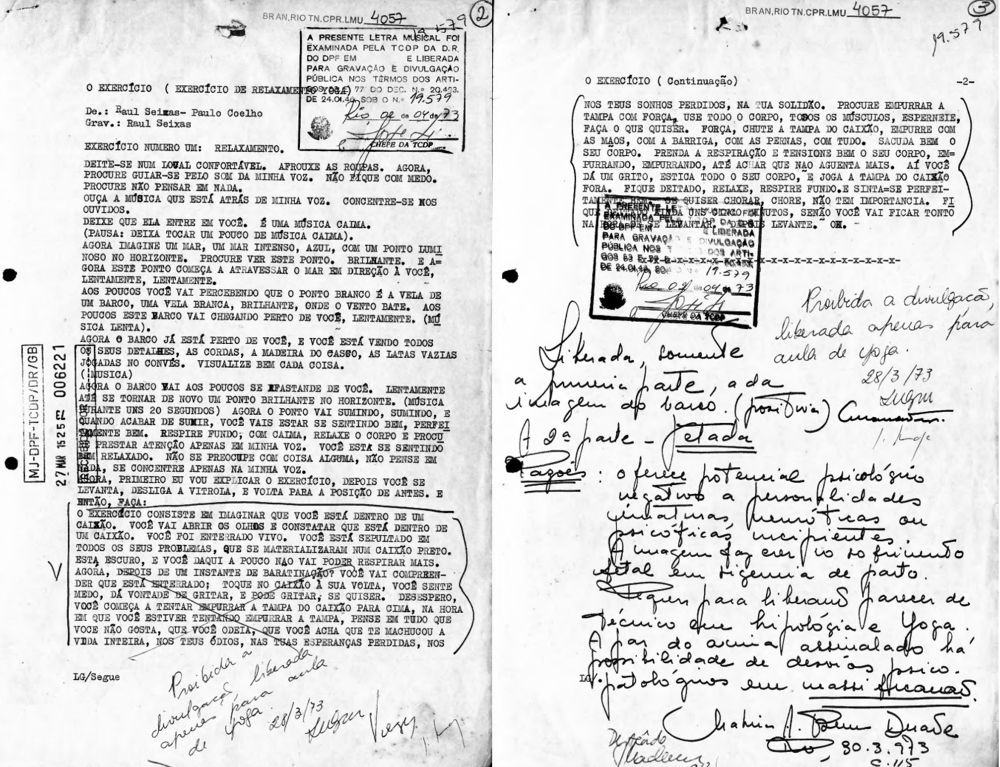 BRAN,RIO TN.CPR.LMU 4057
19.579
2
A PRESENTE LETRA MUSICAL FOI
EXAMINADA PELA TCDP DA D.R.
DO DPF EM E LIBERADA
PARA GRAVAÇÃO E DIVULGAÇÃO
PÚBLICA NOS TÊRMOS DOS ARTI-
77 DO DEC. N.º 20.493.
DE 24.01.46, SOB O N.º 19.579
Rio, 02 de 04 de 73
CHEFE DA TCDP
O EXERCÍCIO ( EXERCÍCIO DE RELAXAMENTO
De.: Raul Seixas- Paulo Coelho
Grav.: Raul Seixas
EXERCÍCIO NUMERO UM: RELAXAMENTO.
DEITE-SE NUM LOCAL CONFORTÁVEL. AFROUXE AS ROUPAS. AGORA,
PROCURE GUIAR-SE PELO SOM DA MINHA VOZ. NÃO FIQUE COM MEDO.
PROCURE NÃO PENSAR EM NADA.
OUÇA A MÚSICA QUE ESTÁ ATRÁS DE MINHA VOZ. CONCENTRE-SE NOS
OUVIDOS.
DEIXE QUE ELA ENTRE EM VOCÊ. É UMA MÚSICA CALMA.
(PAUSA: DEIXA TOCAR UM POUCO DE MÚSICA CALMA).
AGORA IMAGINE UM MAR, UM MAR INTENSO, AZUL, COM UM PONTO LUMI
NOSO NO HORIZONTE. PROCURE VER ESTE PONTO. BRILHANTE. E A=
GORA ESTE PONTO COMEÇA A ATRAVESSAR O MAR EM DIREÇÃO À VOCÊ,
LENTAMENTE, LENTAMENTE.
AOS POUCOS VOCÊ VAI PERCEBENDO QUE O PONTO BRANCO É A VELA DE
UM BARCO, UMA VELA BRANCA, BRILHANTE, ONDE O VENTO BATE. AOS
POUCOS ESTE BARCO VAI CHEGANDO PERTO DE VOCÊ, LENTAMENTE. (MÚ
SICA LENTA).
AGORA O BARCO JÁ ESTÁ PERTO DE VOCÊ, E VOCÊ ESTÁ VENDO TODOS
OS SEUS DETALHES, AS CORDAS, A MADEIRA DO CASCO, AS LATAS VAZIAS
JOGADAS NO CONVÉS. VISUALIZE BEM CADA COISA.
(MUSICA)
AGORA O BARCO VAI AOS POUCOS SE AFASTANDE DE VOCÊ. LENTAMENTE
ATÉ SE TORNAR DE NOVO UM PONTO BRILHANTE NO HORIZONTE. (MÚSICA
DURANTE UNS 20 SEGUNDOS) AGORA O PONTO VAI SUMINDO, SUMINDO, E
QUANDO ACABAR DE SUMIR, VOCÊ VAIS ESTAR SE SENTINDO BEM, PERFEI
TAMENTE BEM. RESPIRE FUNDO; COM CALMA, RELAXE O CORPO E PROCU
RE PRESTAR ATENÇÃO APENAS EM MINHA VOZ. VOCÊ ESTÁ SE SENTINDO
BEM RELAXADO. NÃO SE PREOCUPE COM COISA ALGUMA, NÃO PENSE EM
NADA, SE CONCENTRE APENAS NA MINHA VOZ.
AGORA, PRIMEIRO EU VOU EXPLICAR O EXERCÍCIO, DEPOIS VOCÊ SE
LEVANTA, DESLIGA A VITROLA, E VOLTA PARA A POSIÇÃO DE ANTES. E
ENTÃO, FAÇA:
O EXERCÍCIO CONSISTE EM IMAGINAR QUE VOCÊ ESTÁ DENTRO DE UM
CAIXÃO. VOCÊ VAI ABRIR OS OLHOS E CONSTATAR QUE ESTÁ DENTRO DE
UM CAIXÃO. VOCÊ FOI ENTERRADO VIVO. VOCÊ ESTÁ SEPULTADO EM
TODOS OS SEUS PROBLEMAS, QUE SE MATERIALIZARAM NUM CAIXÃO PRETO.
ESTÁ ESCURO, E VOCÊ DAQUI A POUCO NAO VAI PODER RESPIRAR MAIS.
AGORA, DEPOIS DE UM INSTANTE DE BARATINAÇÃO? VOCÊ VAI COMPREEN-
DER QUE ESTÁ ENTERRADO; TOQUE NO CAIXÃO À SUA VOLTA, VOCÊ SENTE
MEDO, DÁ VONTADE DE GRITAR, E PODE GRITAR, SE QUISER. DESESPERO,
VOCÊ COMEÇA A TENTAR EMPURRAR A TAMPA DO CAIXÃO PARA CIMA, NA HORA
EM QUE VOCÊ ESTIVER TENTANDO EMPURRAR A TAMPA, PENSE EM TUDO QUE
VOCE NÃO GOSTA, QUE VOCÊ ODEIA, QUE VOCÊ ACHA QUE TE MACHUCOU A
VIDA INTEIRA, NOS TEUS ÓDIOS, NAS TUAS ESPERANÇAS PERDIDAS, NOS
LG/Segue
MJ-DPF-TCDP/DR/GB
27 MAR 1525 006221
Proibida a
divulgaçã, liberada
apenas para aula
de yoga.
28/3/73
BRAN,RIO TN.CPR.LMU 4057
3
19.579
O EXERCÍCIO ( Continuação) -2-
NOS TEUS SONHOS PERDIDOS, NA TUA SOLIDÃO. PROCURE EMPURRAR A
TAMPA COM FORÇA, USE TODO O CORPO, TODOS OS MÚSCULOS, ESPERNEIE,
FAÇA O QUE QUISER. FORÇA, CHUTE A TAMPA DO CAIXÃO, EMPURRE COM
AS MAOS, COM A BARRIGA, COM AS PERNAS, COM TUDO. SACUDA BEM O
SEU CORPO. PRENDA A RESPIRAÇÃO E TENSIONE BEM O SEU CORPO, EM=
PURRANDO, EMPURRANDO, ATÉ ACHAR QUE NAO AGUENTA MAIS. AÍ VOCÊ
DÁ UM GRITO, ESTICA TODO O SEU CORPO, E JOGA A TAMPA DO CAIXÃO
FORA. FIQUE DEITADO, RELAXE, RESPIRE FUNDO.E SINTA=SE PERFEI-
TAMENTE BEM. SE QUISER CHORAR, CHORE, NÃO TEM IMPORTANCIA. FI
QUE AINDA UNS CINCO MINUTOS, SENÃO VOCÊ VAI FICAR TONTO
NA LEVANTAR, LEVANTE. OK.
A PRESENTE LE
EXAMINADA PEL DA D.R.
DO DPF EM E LIBERADA
PARA GRAVAÇÃO E DIVULGAÇÃO
PÚBLICA NOS T DOS ARTI-
DE 24.01.46, SOB 19.579
Rio 02 de 04 de 73
CHEFE DA TCDP
Proibida a divulgaçã,
liberada apenas para
aula de yoga.
28/3/73
Liberada, somente
a primeira parte, a da
imagem do barco.
A 2ª parte - Vetada
Razões: oferece potencial psicológico
negativo a personalidades
imaturas, neuróticas ou
psicóticas incipientes.
A imagem faz crer no sofrimento
fetal em vigencia de parto.
Requer para liberação parecer de
Técnico em hipnologia e Yoga.
A par do acima assinalado há
possibilidade de desvios psico-
patológicos em massificação.
Duarte
Rio, 30.3.973
C.115